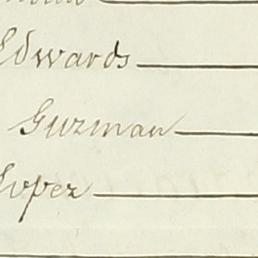 Edwards
Guzman
Lopez